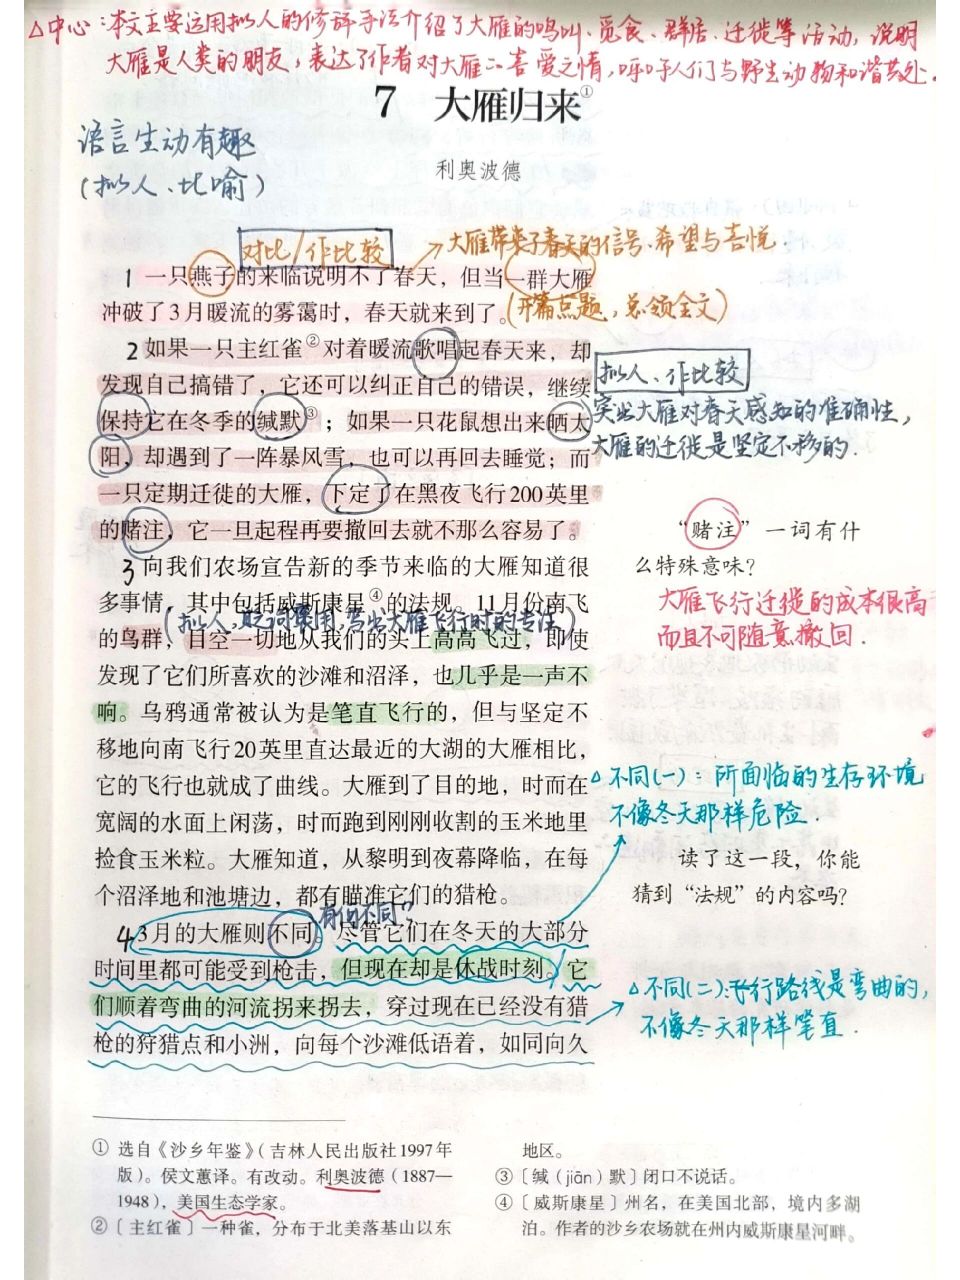 △中心:本文主要运用拟人的修辞手法介绍了大雁的鸣叫、觅食、群居、迁徙等活动,说明
大雁是人类的朋友,表达了作者对大雁的喜爱之情,呼吁人们与野生动物和谐共处.
7 大雁归来①
利奥波德
语言生动有趣
(拟人、比喻)
对比/作比较
大雁带来了春天的信号、希望与喜悦.
1 一只燕子的来临说明不了春天,但当一群大雁
冲破了3月暖流的雾霭时,春天就来到了。
(开篇点题,总领全文)
2 如果一只主红雀②对着暖流歌唱起春天来,却
发现自己搞错了,它还可以纠正自己的错误,继续
保持它在冬季的缄默③;如果一只花鼠想出来晒太
阳,却遇到了一阵暴风雪,也可以再回去睡觉;而
一只定期迁徙的大雁,下定了在黑夜飞行200英里
的赌注,它一旦起程再要撤回去就不那么容易了。
拟人、作比较
突出大雁对春天感知的准确性,
大雁的迁徙是坚定不移的.
“赌注”一词有什
么特殊意味?
大雁飞行迁徙的成本很高
而且不可随意撤回.
3 向我们农场宣告新的季节来临的大雁知道很
多事情,其中包括威斯康星④的法规。11月份南飞
(拟人,贬词褒用,写出大雁飞行时的专注)
的鸟群,目空一切地从我们的头上高高飞过,即使
发现了它们所喜欢的沙滩和沼泽,也几乎是一声不
响。乌鸦通常被认为是笔直飞行的,但与坚定不
移地向南飞行20英里直达最近的大湖的大雁相比,
它的飞行也就成了曲线。大雁到了目的地,时而在
宽阔的水面上闲荡,时而跑到刚刚收割的玉米地里
捡食玉米粒。大雁知道,从黎明到夜幕降临,在每
个沼泽地和池塘边,都有瞄准它们的猎枪。
△不同(一):所面临的生存环境
不像冬天那样危险.
读了这一段,你能
猜到“法规”的内容吗?
有何不同?
4 3月的大雁则不同。尽管它们在冬天的大部分
时间里都可能受到枪击,但现在却是休战时刻。它
们顺着弯曲的河流拐来拐去,穿过现在已经没有猎
枪的狩猎点和小洲,向每个沙滩低语着,如同向久
△不同(二):飞行路线是弯曲的,
不像冬天那样笔直.
① 选自《沙乡年鉴》(吉林人民出版社1997年
版)。侯文蕙译。有改动。利奥波德(1887—
1948),美国生态学家。
② 〔主红雀〕一种雀,分布于北美落基山以东
地区。
③ 〔缄(jiān)默〕闭口不说话。
④ 〔威斯康星〕州名,在美国北部,境内多湖
泊。作者的沙乡农场就在州内威斯康星河畔。